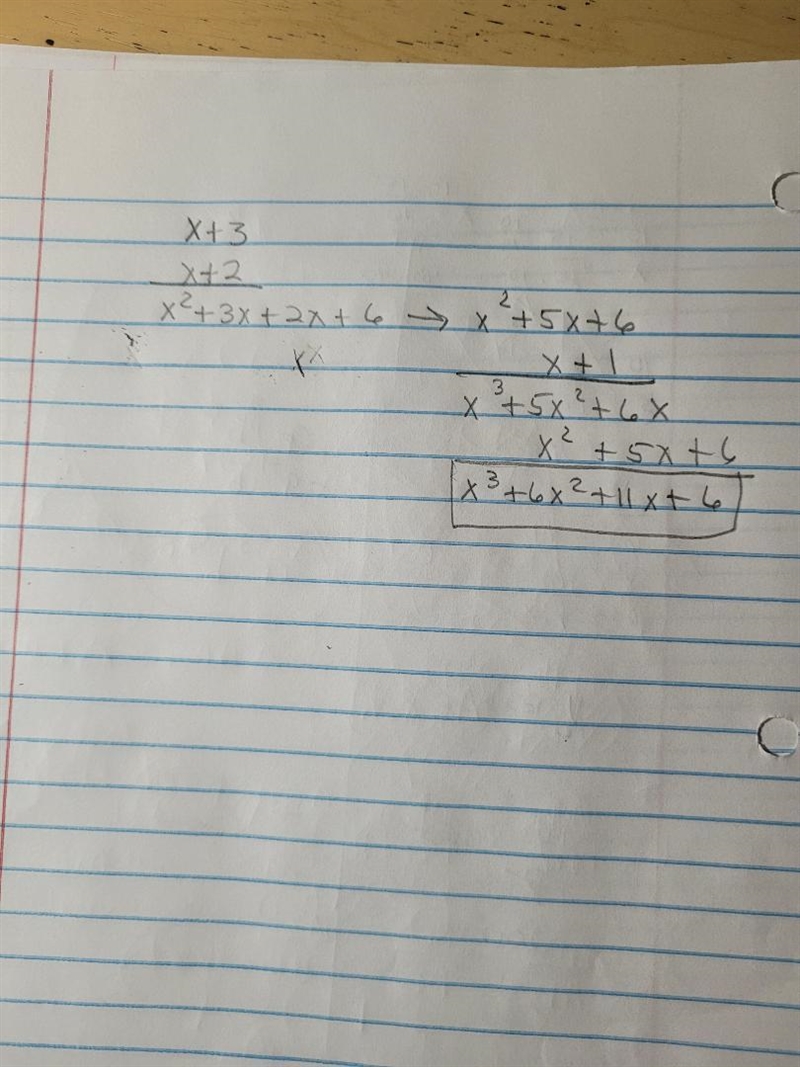 x+3
x+2
x²+3x+2x+6 → x²+5x+6
x+1
x³+5x²+6x
x²+5x+6
x³+6x²+11x+6